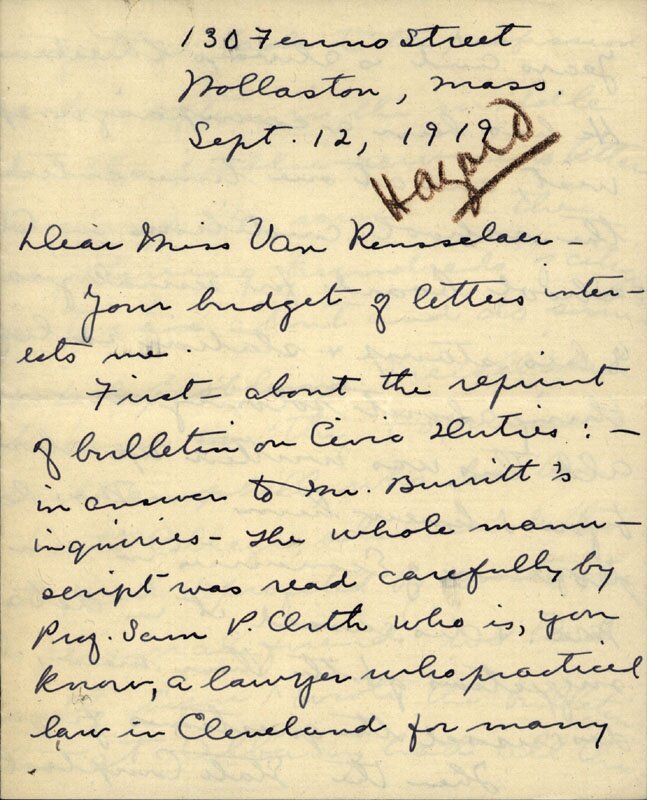 130 Fenno Street
Wollaston, Mass.
Sept. 12, 1919
Hazard
Dear Miss Van Rensselaer -
Your budget of letters inter-
ests me.
First - about the reprint
of bulletin on Civic Duties : -
in answer to Mr. Burritt's
inquiries - The whole manu-
script was read carefully by
Prof. Sam P. Orth who is, you
know, a lawyer who practiced
law in Cleveland for many